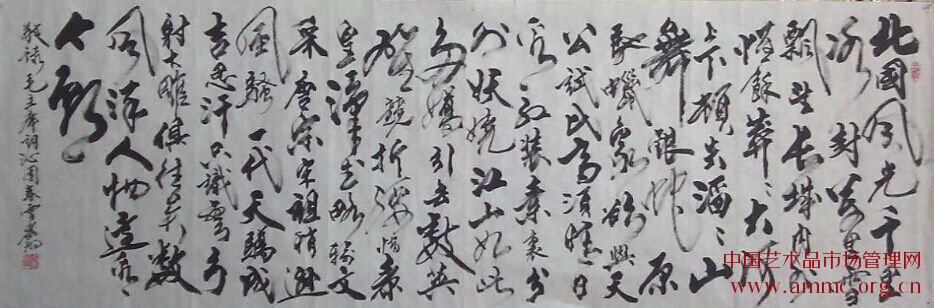 北國風光千里
冰封萬里雪
飄望長城內外
惟餘莽々大河
上下頓失滔々山
舞銀蛇原
馳蠟象欲與天
公試比高須晴日
看紅裝素裹分
外妖嬈江山如此
多嬌引無數英
雄競折腰惜秦
皇漢武略輸文
采唐宗宋祖稍遜
風騷一代天驕成
吉思汗只識彎弓
射大雕俱往矣數
風流人物還看
今朝
敬錄毛主席詞沁園春雪
中国艺术品市场管理网
www.ammc.org.cn